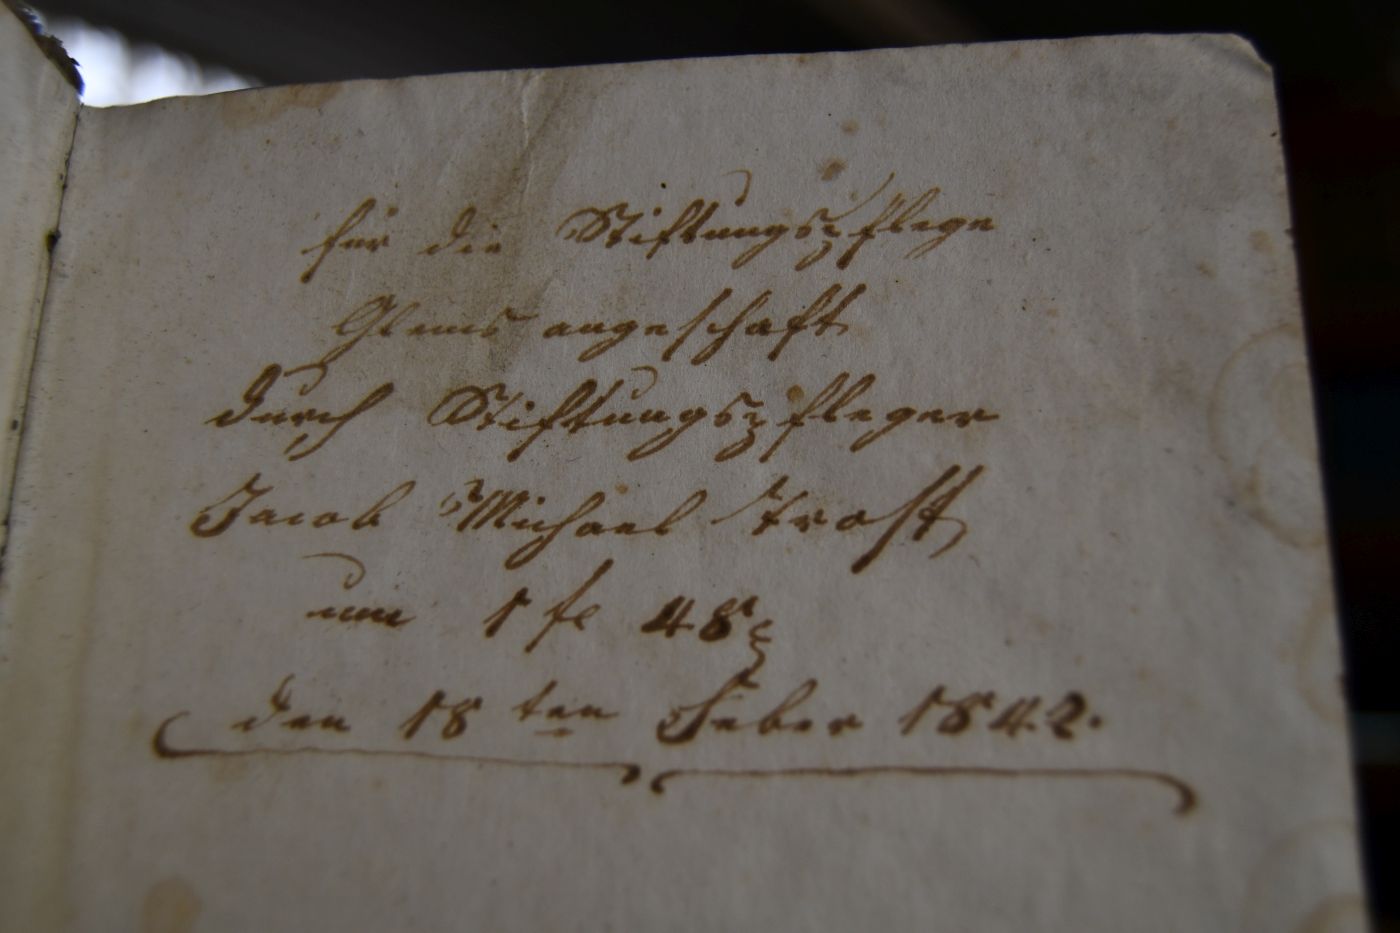 für die Stiftungspflege
Glems angeschaft
durch Stiftungspfleger
Jacob Michael Trost
um 1 fl 48
den 18ten Feber 1842.